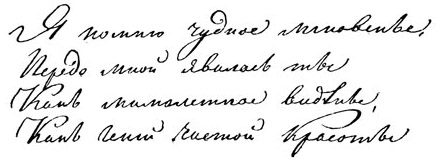 Я помню чудное мгновенье,
Передо мной явилась ты
Какъ мимолетное видѣнье,
Какъ геній чистой красоты